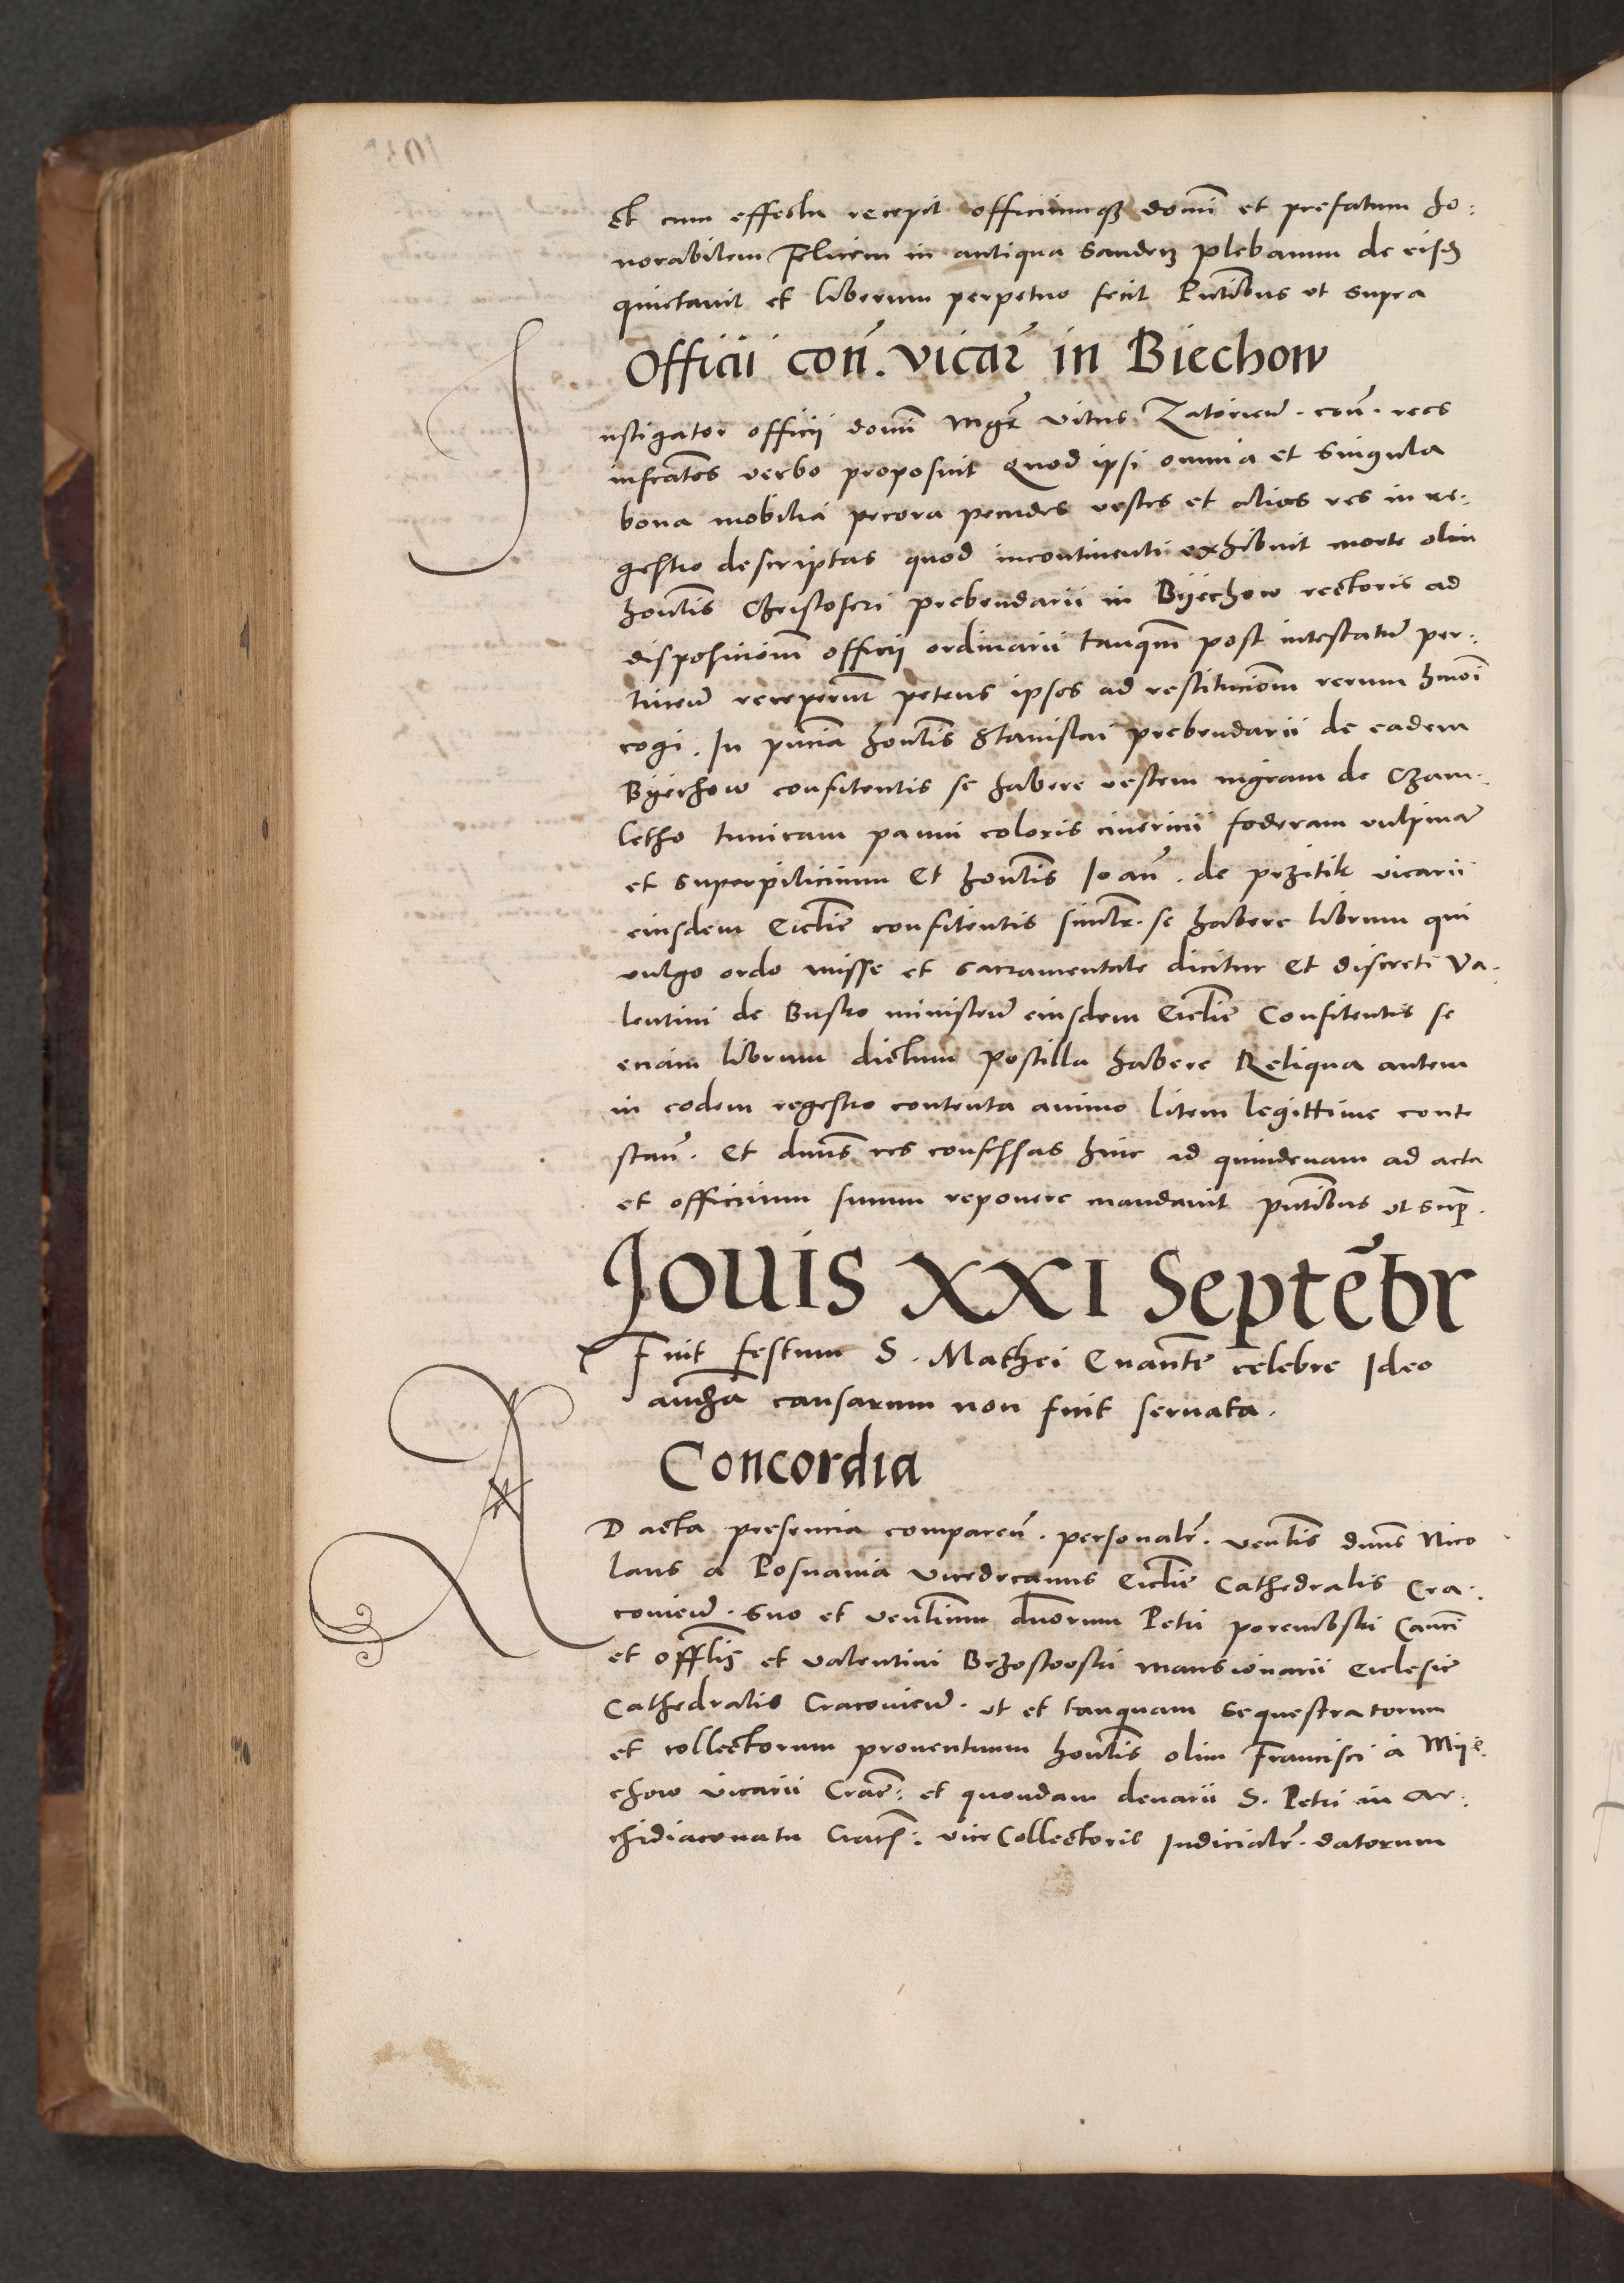 Et cum effectu recepit officiumq₃ domĩ et prefatum ho:
norabilem Felicem in antiqua Sandecz plebanum de eisd̃
quietauit et liberum perpetuo fecit Pñtibus ut supra
Officii coñ. vicar̃ in Biechow
Instigator officii domĩ Mgr̃ Vitus Zatorien̄. coñ. rees
infratõs verbo proposuit Quod ipsi omnia et singula
bona mobilia pecora pecudes vestes et alias res in re:
gestro descriptas quod incontinenti exhibuit morte olim
hon̄tis Christoferi prebendarii in Byechow rectoris ad
disposicionem̄ officii ordinarii tanqm̃ post intestatum̄ per:
tinen̄ receperun̄t petens ipsos ad restitucion̄m rerum hmõi
cogi. In pn̄cia hon̄tis Stanislai prebendarii de eadem
Byechow confitentis se habere vestem nigram de Czam:
letho tunicam panni coloris cinericii foderam vulpinam̄
et superpilicium Et hon̄tis Ioan̄. de przitik vicarii
eiusdem Ecclīe confitentis simlr̃. se habere librum qui
vulgo ordo misse et sacramentale dicitur Et discreti Va:
lentini de Busko ministri eiusdem Ecclīe Confitentis se
eciam librum dictum Postilla habere Reliqua autem
in eodem regestro contenta animo litem legittime conte
stan̄. Et dnn̄s res confessas hinc ad quindenam ad acta
et officium suum reponere mandauit pñtibus ut sup̄.
Jouis XXI Septēbr
Fuit festum S. Mathei Euan̄te celebre Ideo
aud̄ia causarum non fuit seruata.
Concordia
AD acta presencia comparen̄. personalr̃. ven̄lis dnn̄s Nico
laus a Posnania vicedecanus Ecclīe Cathedralis Cra:
couien̄. suo et ven̄lium dn̄orum Petri porembski Can̄ci
et offīlis et valentini Brzostowski mansionarii Ecclesie
Cathedralis Cracouien̄. ut et tanquam sequestratorum
et collectorum prouentuum hon̄lis olim Francisci à Myie
chow vicarii Crac̄: et quondam denarii S. Petri in Ar:
chidiaconatu Crac̄: vice Collectoris Iudicialr̃. datorum